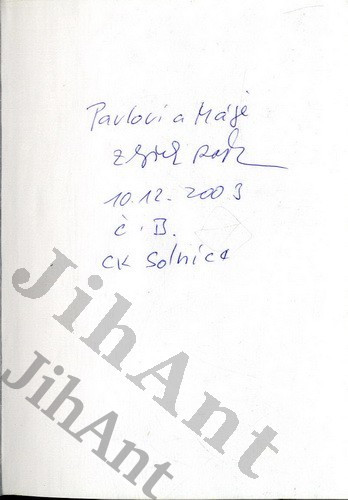 Pavlovi a Máje
10.12.2003
Č.B.
CK Solnice
JihAnt
JihAnt